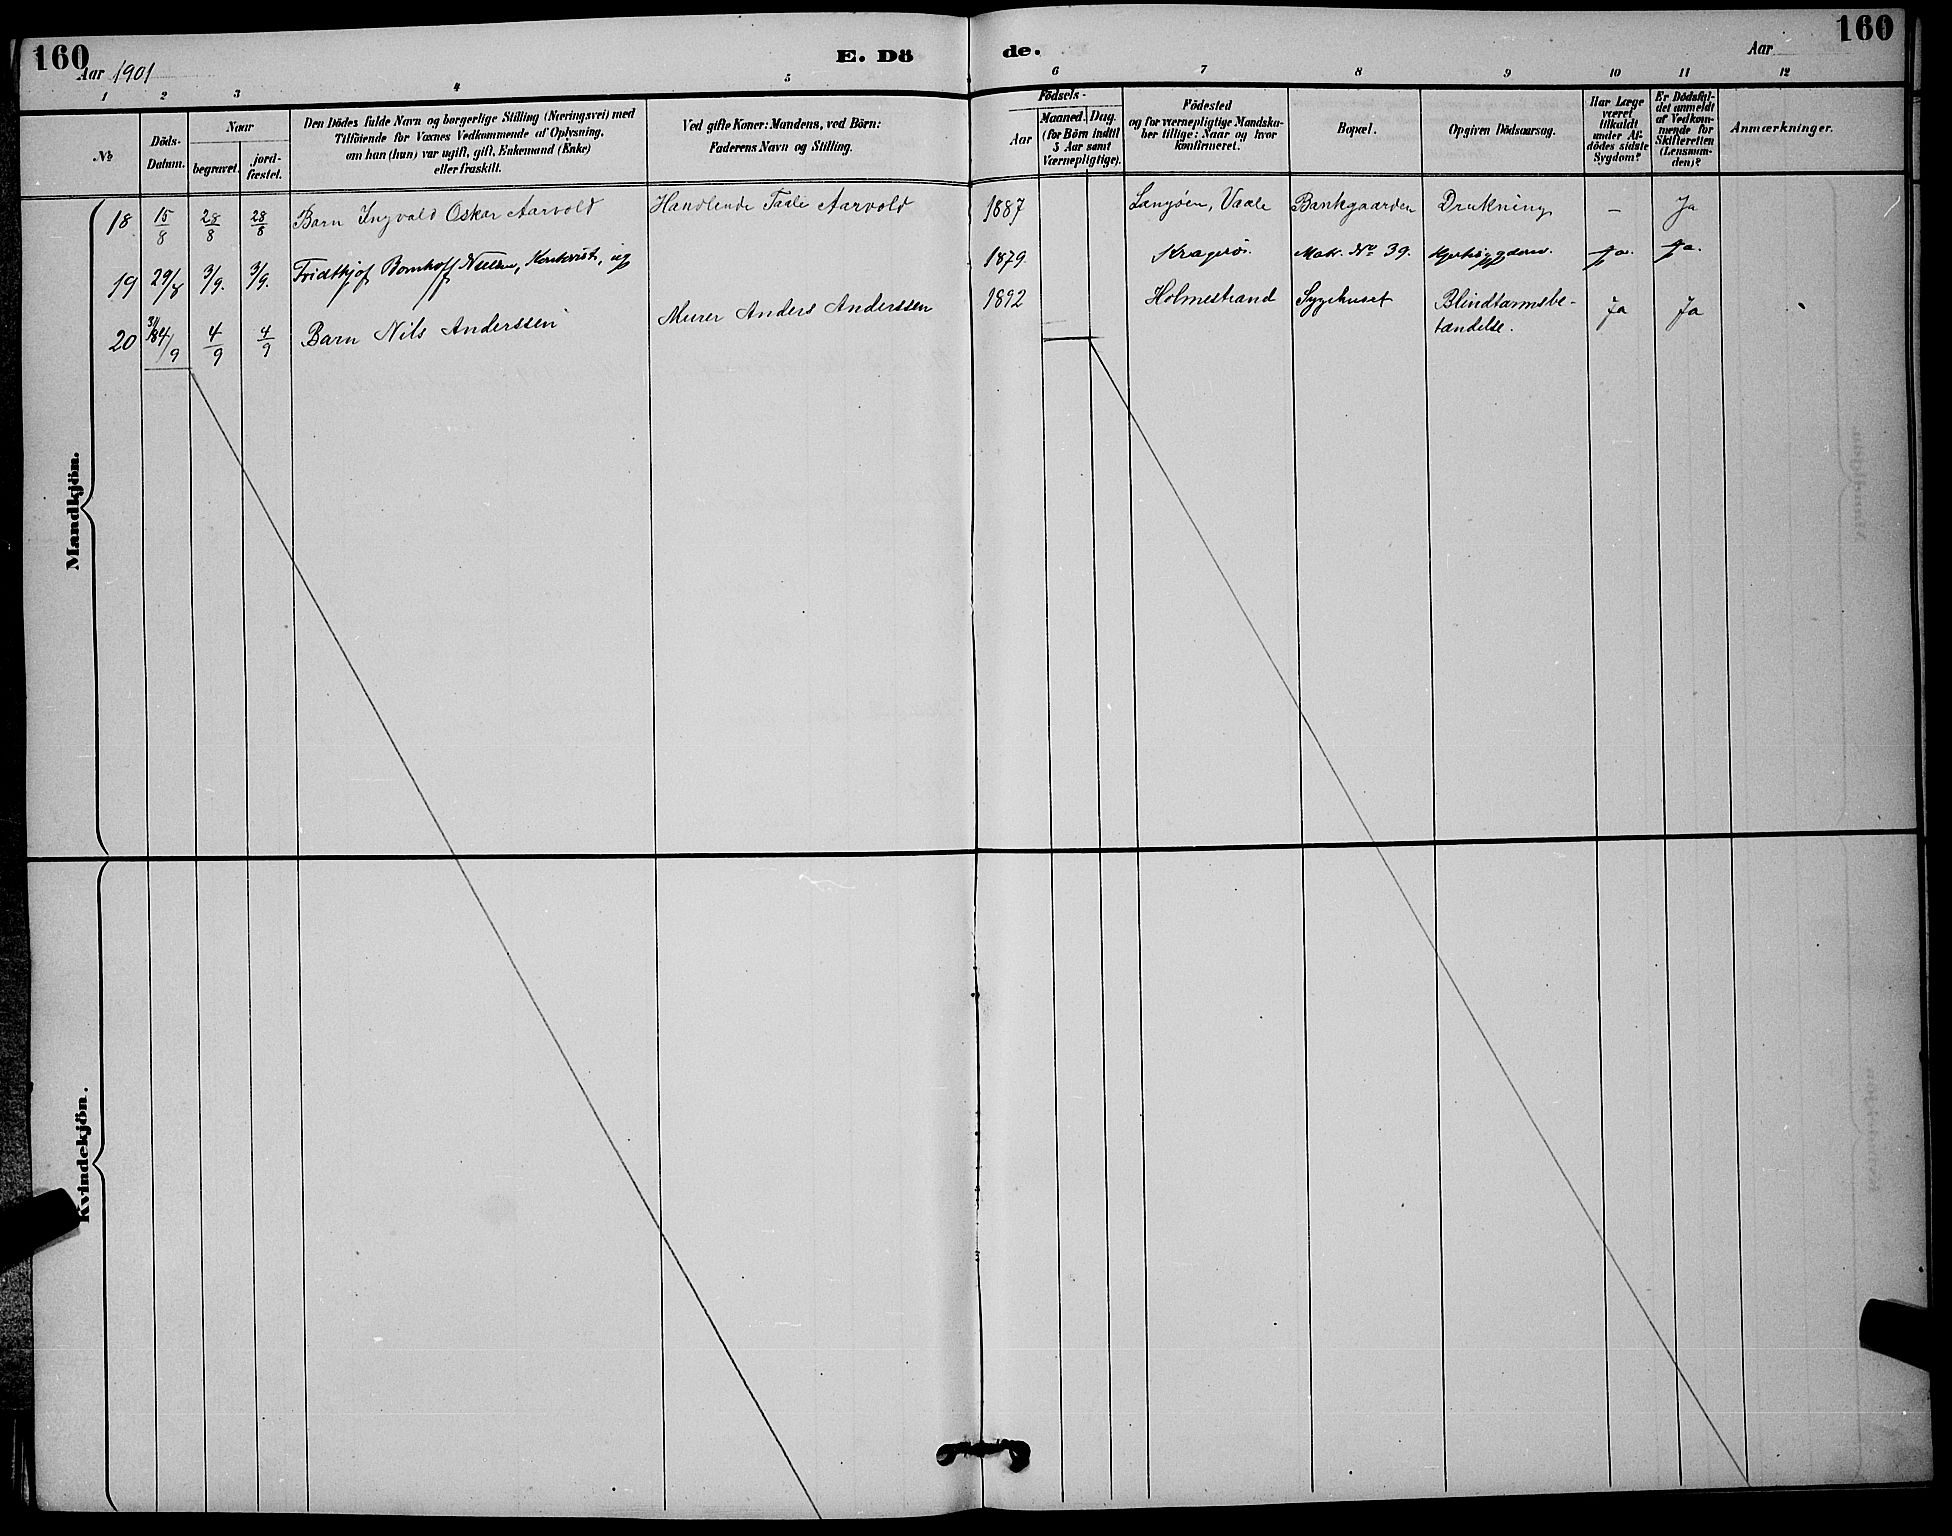 160
Aar 1901
E. Dö
de.
Aar
160
1 2 3 4 5 6 7 8 9 10 11 12
№
Döds-
Datum.
Naar
begravet.
jord-
fæstet.
Den Dödes fulde Navn og borgerlige Stilling (Næringsvei) med
Tilföiende for Voxnes Vedkommende af Oplysning,
om han (hun) var ugift, gift, Enkemand (Enke)
eller fraskilt.
Ved gifte Koner: Mandens, ved Börn:
Faderens Navn og Stilling.
Födsels-
Aar
Maaned.
Dag.
(for Börn indtil
5 Aar samt
Værnepligtige).
Födested
og for værnepligtige Mandska-
ber tillige: Naar og hvor
konfirmeret.
Bopæl.
Opgiven Dödsaarsag.
Har Læge
været
tilkaldt
under Af-
dödes sidste
Sygdom?
Er Dödsfal-
det anmeldt
af Vedkom-
mende for
Skifteretten
(Lensman-
den)?
Anmærkninger.
Mandkjön.
18 15/8 28/8 28/8 Barn Ingvald Oskar Aarvold Handlende Taale Aarvold 1887 Langöen, Vaale Bankgaarden Drukning – Ja
19 29/8 3/9. 3/9. Fridtkjof Bomhoff Nielsen, Kontorist, ug 1879 Kragerö. Matr. No 39. Ja. Ja.
20 31/8 4/9 4/9 4/9 Barn Nils Anderssen Murer Anders Anderssen 1892 Holmestrand Sygehuset Blindtarmsbe-
tændelse. Ja Ja
Kvindekjön.